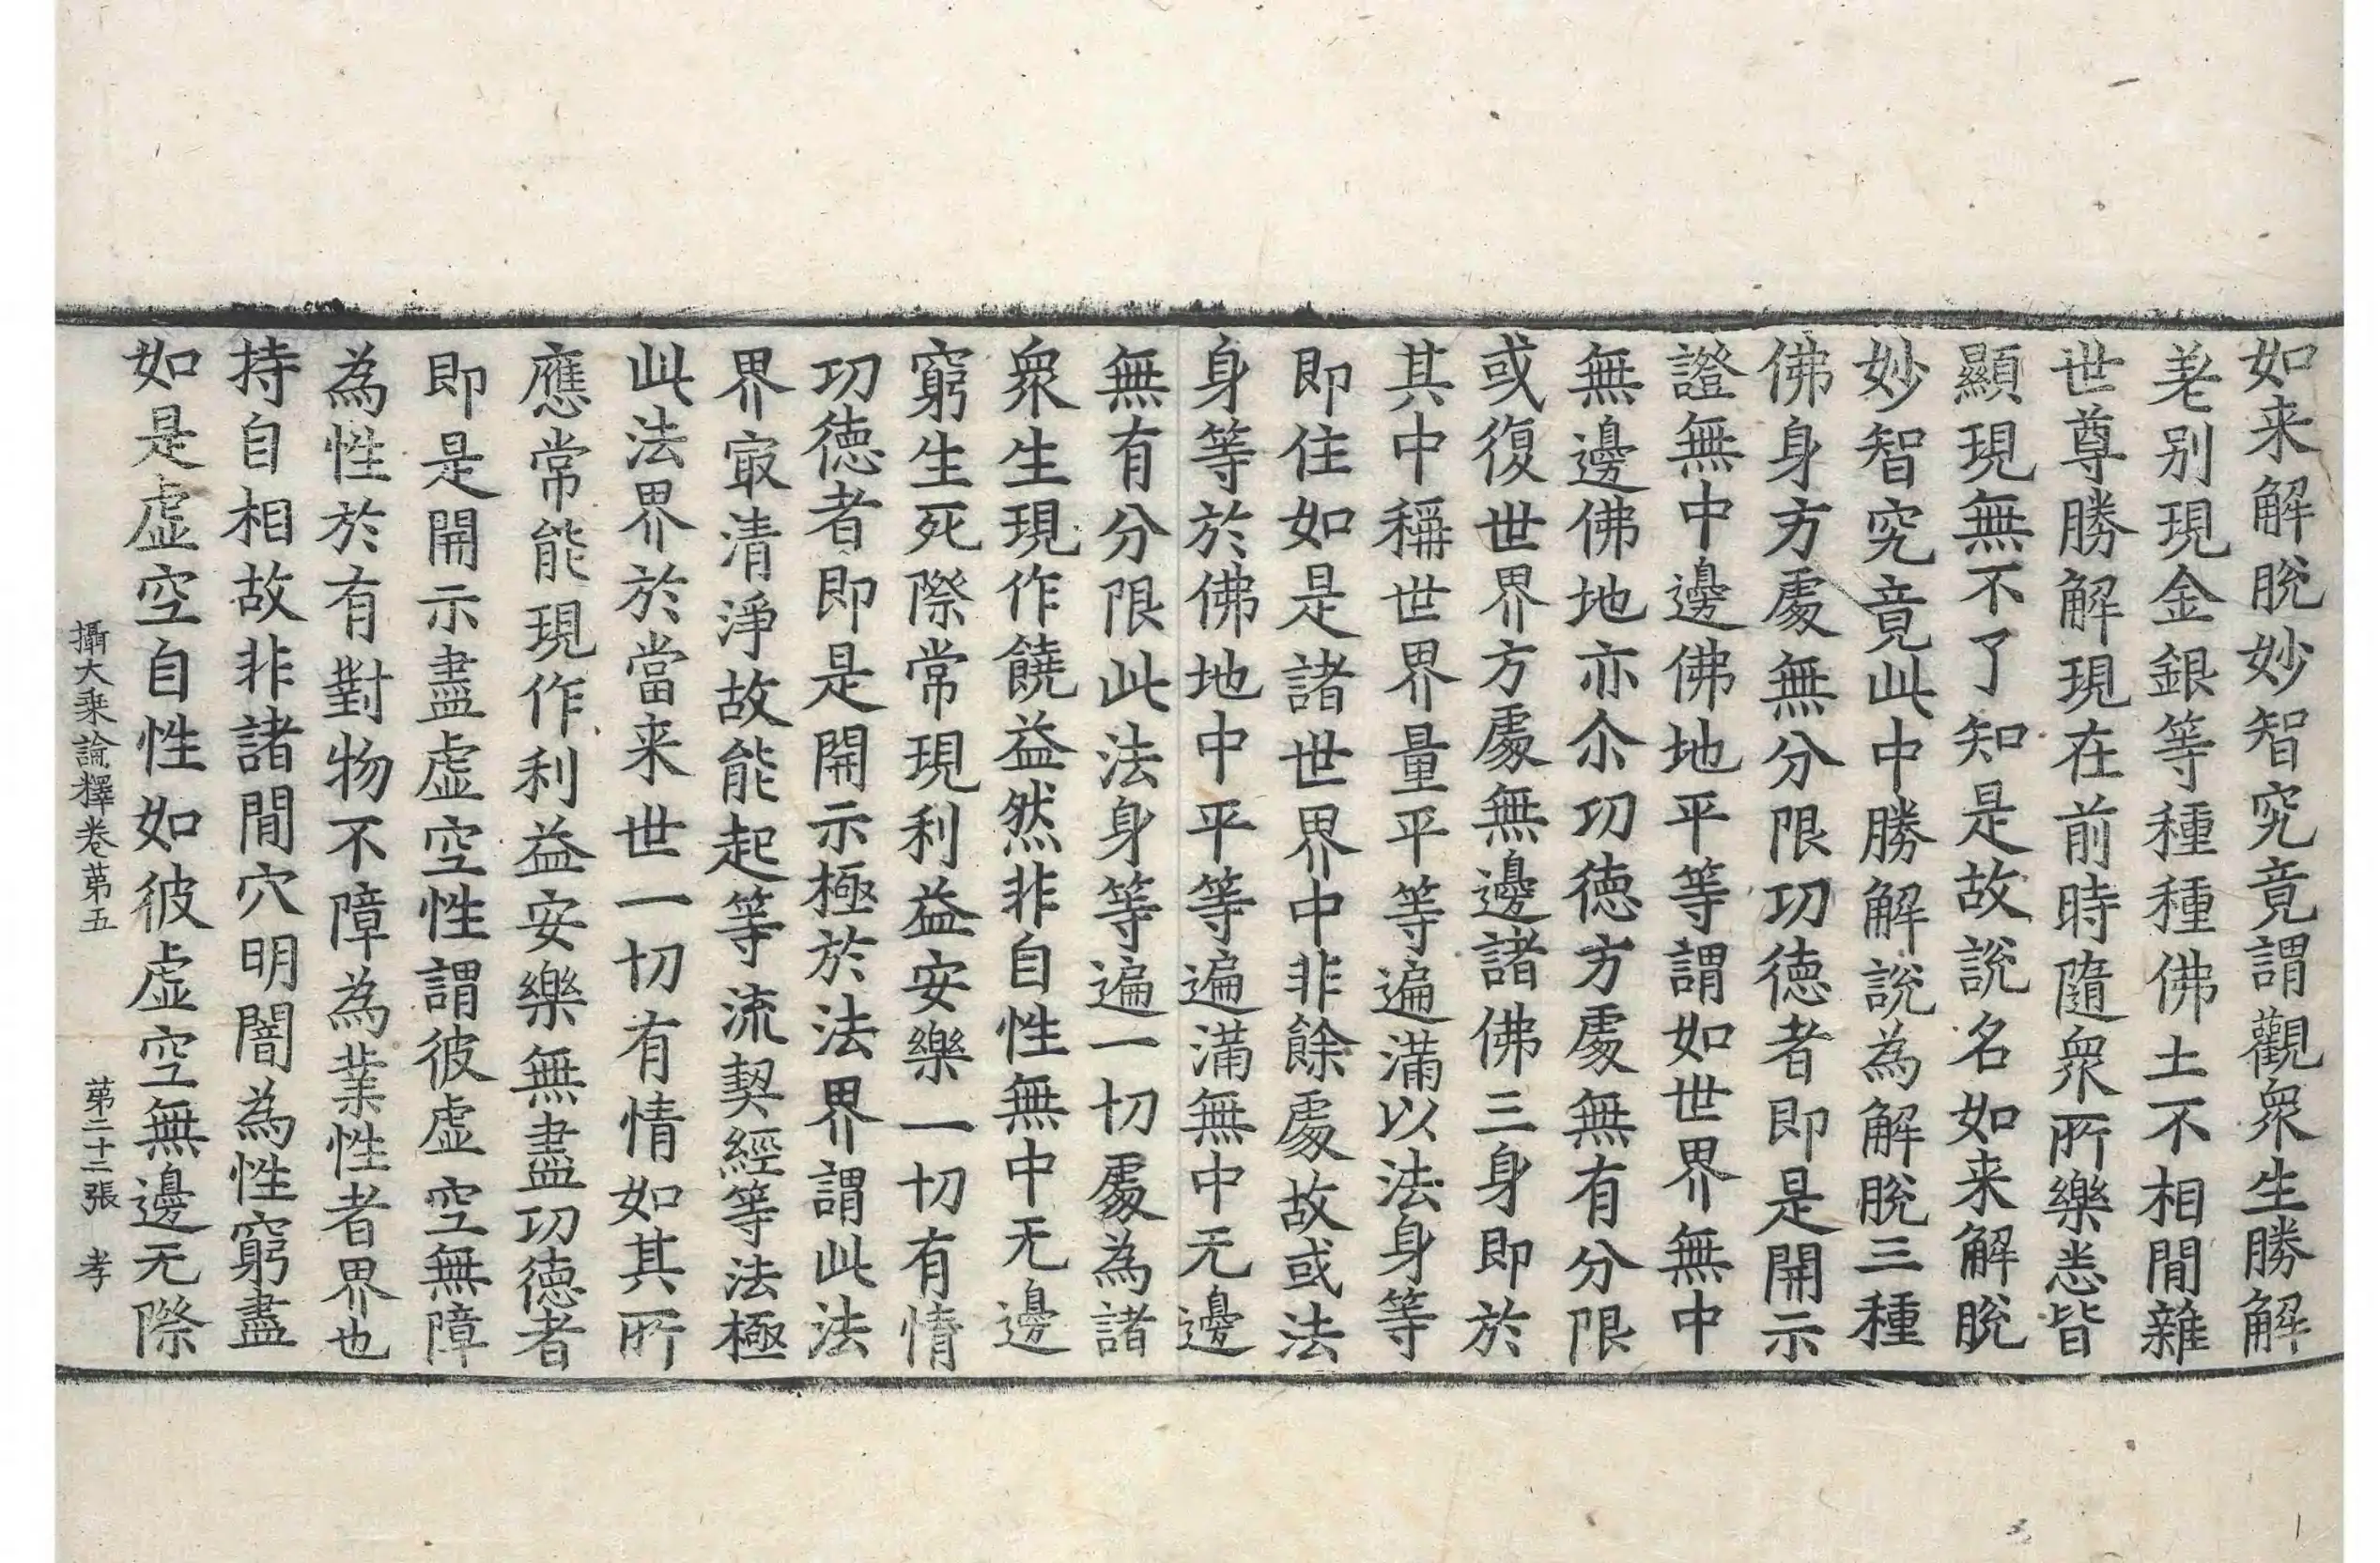 如来解脫妙智究竟謂觀衆生勝解
差别現金銀等種種佛土不相間雜
世尊勝解現在前時隨衆所樂悉皆
顯現無不了知是故說名如来解脫
妙智究竟此中勝解說為解脫三種
佛身方處無分限功徳者即是開示
證無中邊佛地平等謂如世界無中
無邊佛地亦尒功徳方處無有分限
或復世界方處無邊諸佛三身即於
其中稱世界量平等遍滿以法身等
即住如是諸世界中非餘處故或法
身等於佛地中平等遍滿無中无邊
無有分限此法身等遍一切處為諸
衆生現作饒益然非自性無中无邊
窮生死際常現利益安樂一切有情
功徳者即是開示極於法界謂此法
界㝡清淨故能起等流契經等法極
此法界於當来世一切有情如其所
應常能現作利益安樂無盡功徳者
即是開示盡虚空性謂彼虚空無障
為性於有對物不障為業性者界也
持自相故非諸間穴明闇為性窮盡
如是虚空自性如彼虚空無邊无際
攝大乗論釋卷苐五 苐二十二張 孝